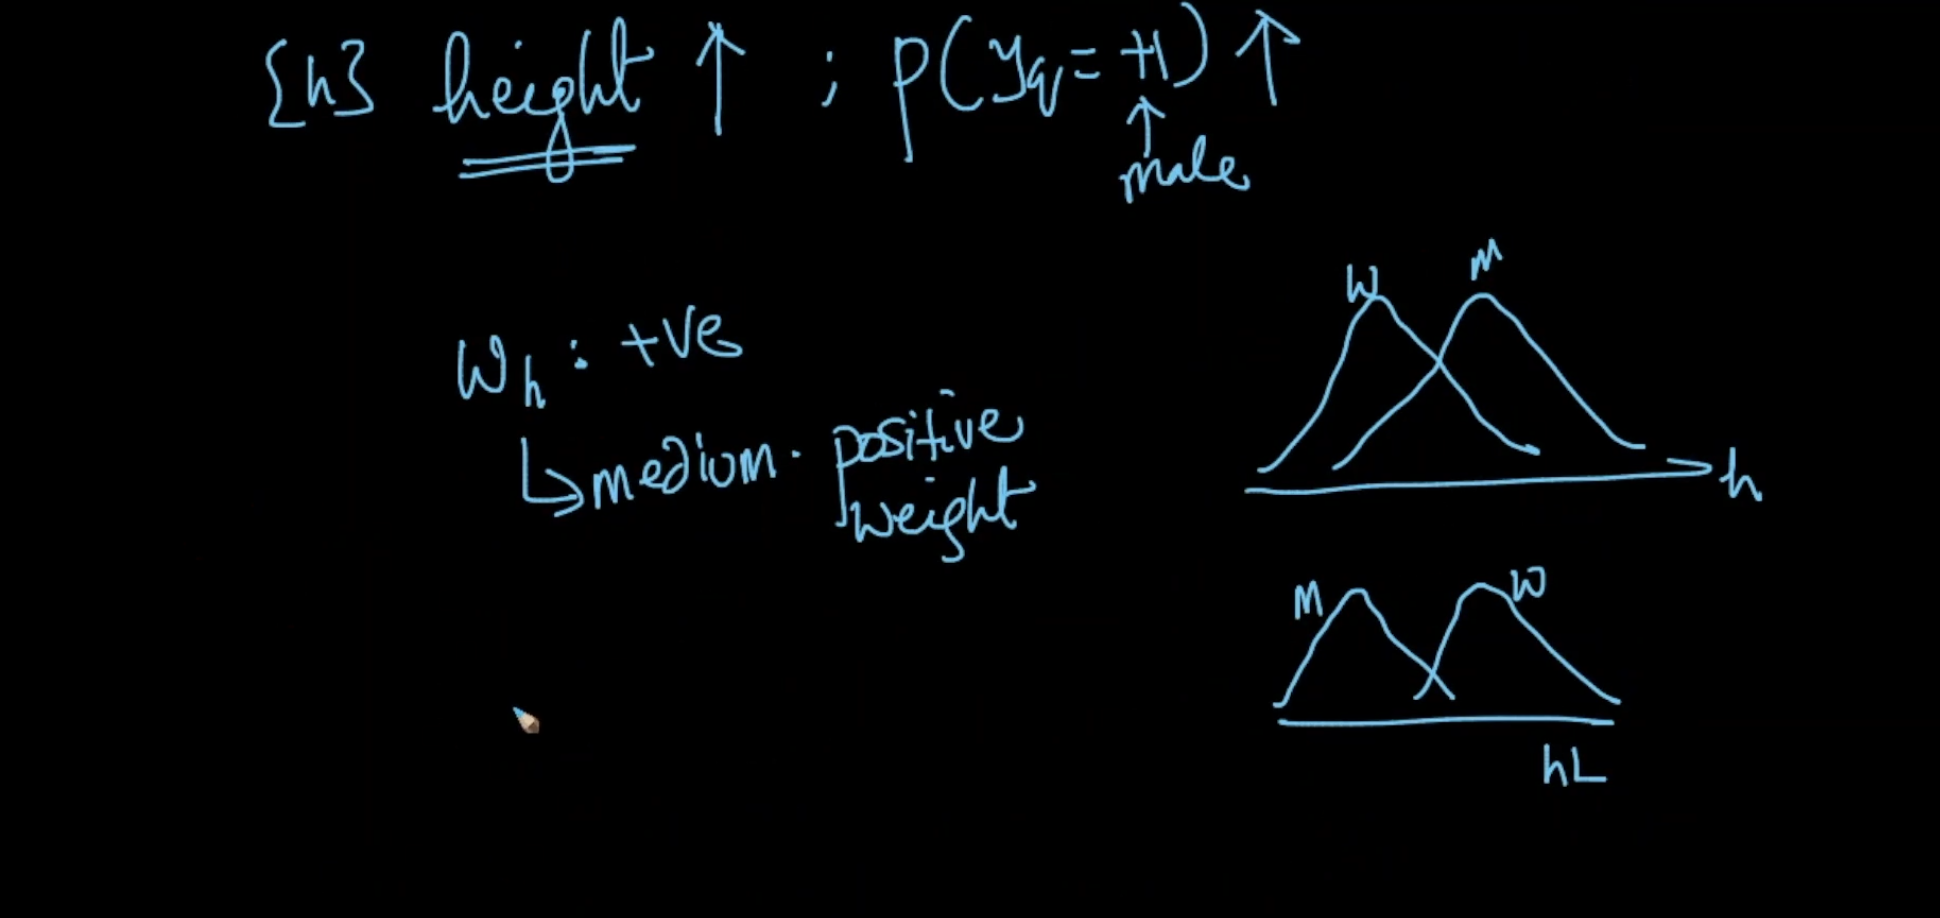 {h} height ↑ ; P(yq = +1) ↑
↑
male
W M
Wh : +ve
↳ medium. positive
weight
h
M W
hL